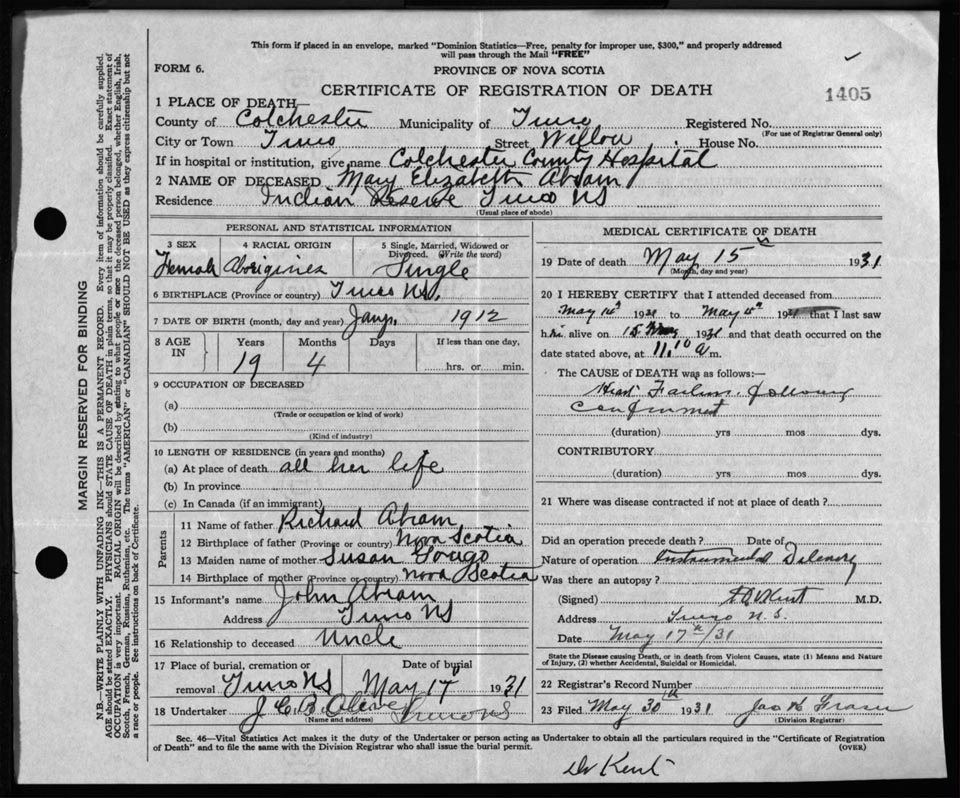 This form if placed in an envelope, marked "Dominion Statistics—Free, penalty for improper use, $300," and properly addressed
will pass through the Mail "FREE"
FORM 6.
PROVINCE OF NOVA SCOTIA
CERTIFICATE OF REGISTRATION OF DEATH
1405
1 PLACE OF DEATH—
County of Colchester Municipality of Truro Registered No.
(For use of Registrar General only)
City or Town Truro Street Willow House No.
If in hospital or institution, give name Colchester County Hospital
2 NAME OF DECEASED Mary Elizabeth Abram
Residence Indian Reserve Truro NS
(Usual place of abode)
PERSONAL AND STATISTICAL INFORMATION
3 SEX 4 RACIAL ORIGIN 5 Single, Married, Widowed or Divorced. (Write the word)
Female Aborigines Single
6 BIRTHPLACE (Province or country) Truro NS.
7 DATE OF BIRTH (month, day and year) Jany. 1912
8 AGE IN Years Months Days If less than one day.
19 4 hrs. or min.
9 OCCUPATION OF DECEASED
(a)
(Trade or occupation or kind of work)
(b)
(Kind of industry)
10 LENGTH OF RESIDENCE (in years and months)
(a) At place of death all her life
(b) In province
(c) In Canada (if an immigrant)
Parents
11 Name of father Richard Abram
12 Birthplace of father (Province or country) Nova Scotia
13 Maiden name of mother Susan Gougo
14 Birthplace of mother (Province or country) Nova Scotia
15 Informant's name John Abram
Address Truro NS
16 Relationship to deceased Uncle
17 Place of burial, cremation or removal Truro NS Date of burial May 17 1931
18 Undertaker J C B Truro NS
(Name and address)
MEDICAL CERTIFICATE OF DEATH
19 Date of death May 15 1931
(Month, day and year)
20 I HEREBY CERTIFY that I attended deceased from
May 14th 1931 to May 15th 1931 that I last saw
h alive on 15 May 1931 and that death occurred on the
date stated above, at 11.10 a m.
The CAUSE OF DEATH was as follows:—
Heart Failure following
confinement
(duration) yrs mos dys.
CONTRIBUTORY
(duration) yrs mos dys.
21 Where was disease contracted if not at place of death?
Did an operation precede death? Date of
Nature of operation Instrumental Delivery
Was there an autopsy?
(Signed) Kent M.D.
Address Truro N.S.
Date May 17th/31
State the Disease causing Death, or in death from Violent Causes, state (1) Means and Nature
of Injury, (2) whether Accidental, Suicidal or Homicidal.
22 Registrar's Record Number
23 Filed May 30th 1931 Jas K Fraser
(Division Registrar)
Sec. 46—Vital Statistics Act makes it the duty of the Undertaker or person acting as Undertaker to obtain all the particulars required in the "Certificate of Registration
of Death" and to file the same with the Division Registrar who shall issue the burial permit.
(OVER)
Dr Kent
MARGIN RESERVED FOR BINDING
N.B.—WRITE PLAINLY WITH UNFADING INK—THIS IS A PERMANENT RECORD. Every item of information should be carefully supplied.
AGE should be stated EXACTLY. PHYSICIANS should STATE CAUSE OF DEATH in plain terms, so that it may be properly classified. Exact statement of
OCCUPATION is very important. RACIAL ORIGIN will be described by stating to what people or race the deceased person belonged, whether English, Irish,
Scotch, French, German, Russian, Ruthenian, etc. The terms "AMERICAN" or "CANADIAN" SHOULD NOT BE USED as they express citizenship but not
a race or people. See instructions on back of Certificate.